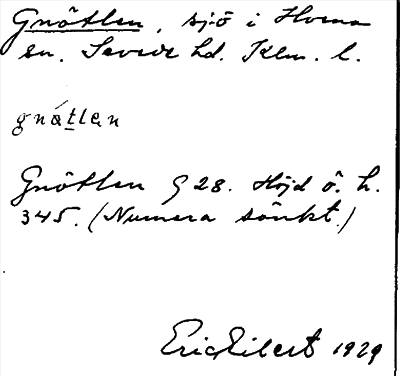 Gnötlen, sjö i Hvena
sn. Sevede hd. Klm. l.
gnátlan
Gnötlen § 28. Höjd ö. h.
345. (Numera sänkt.)
Eric Eilert 1929